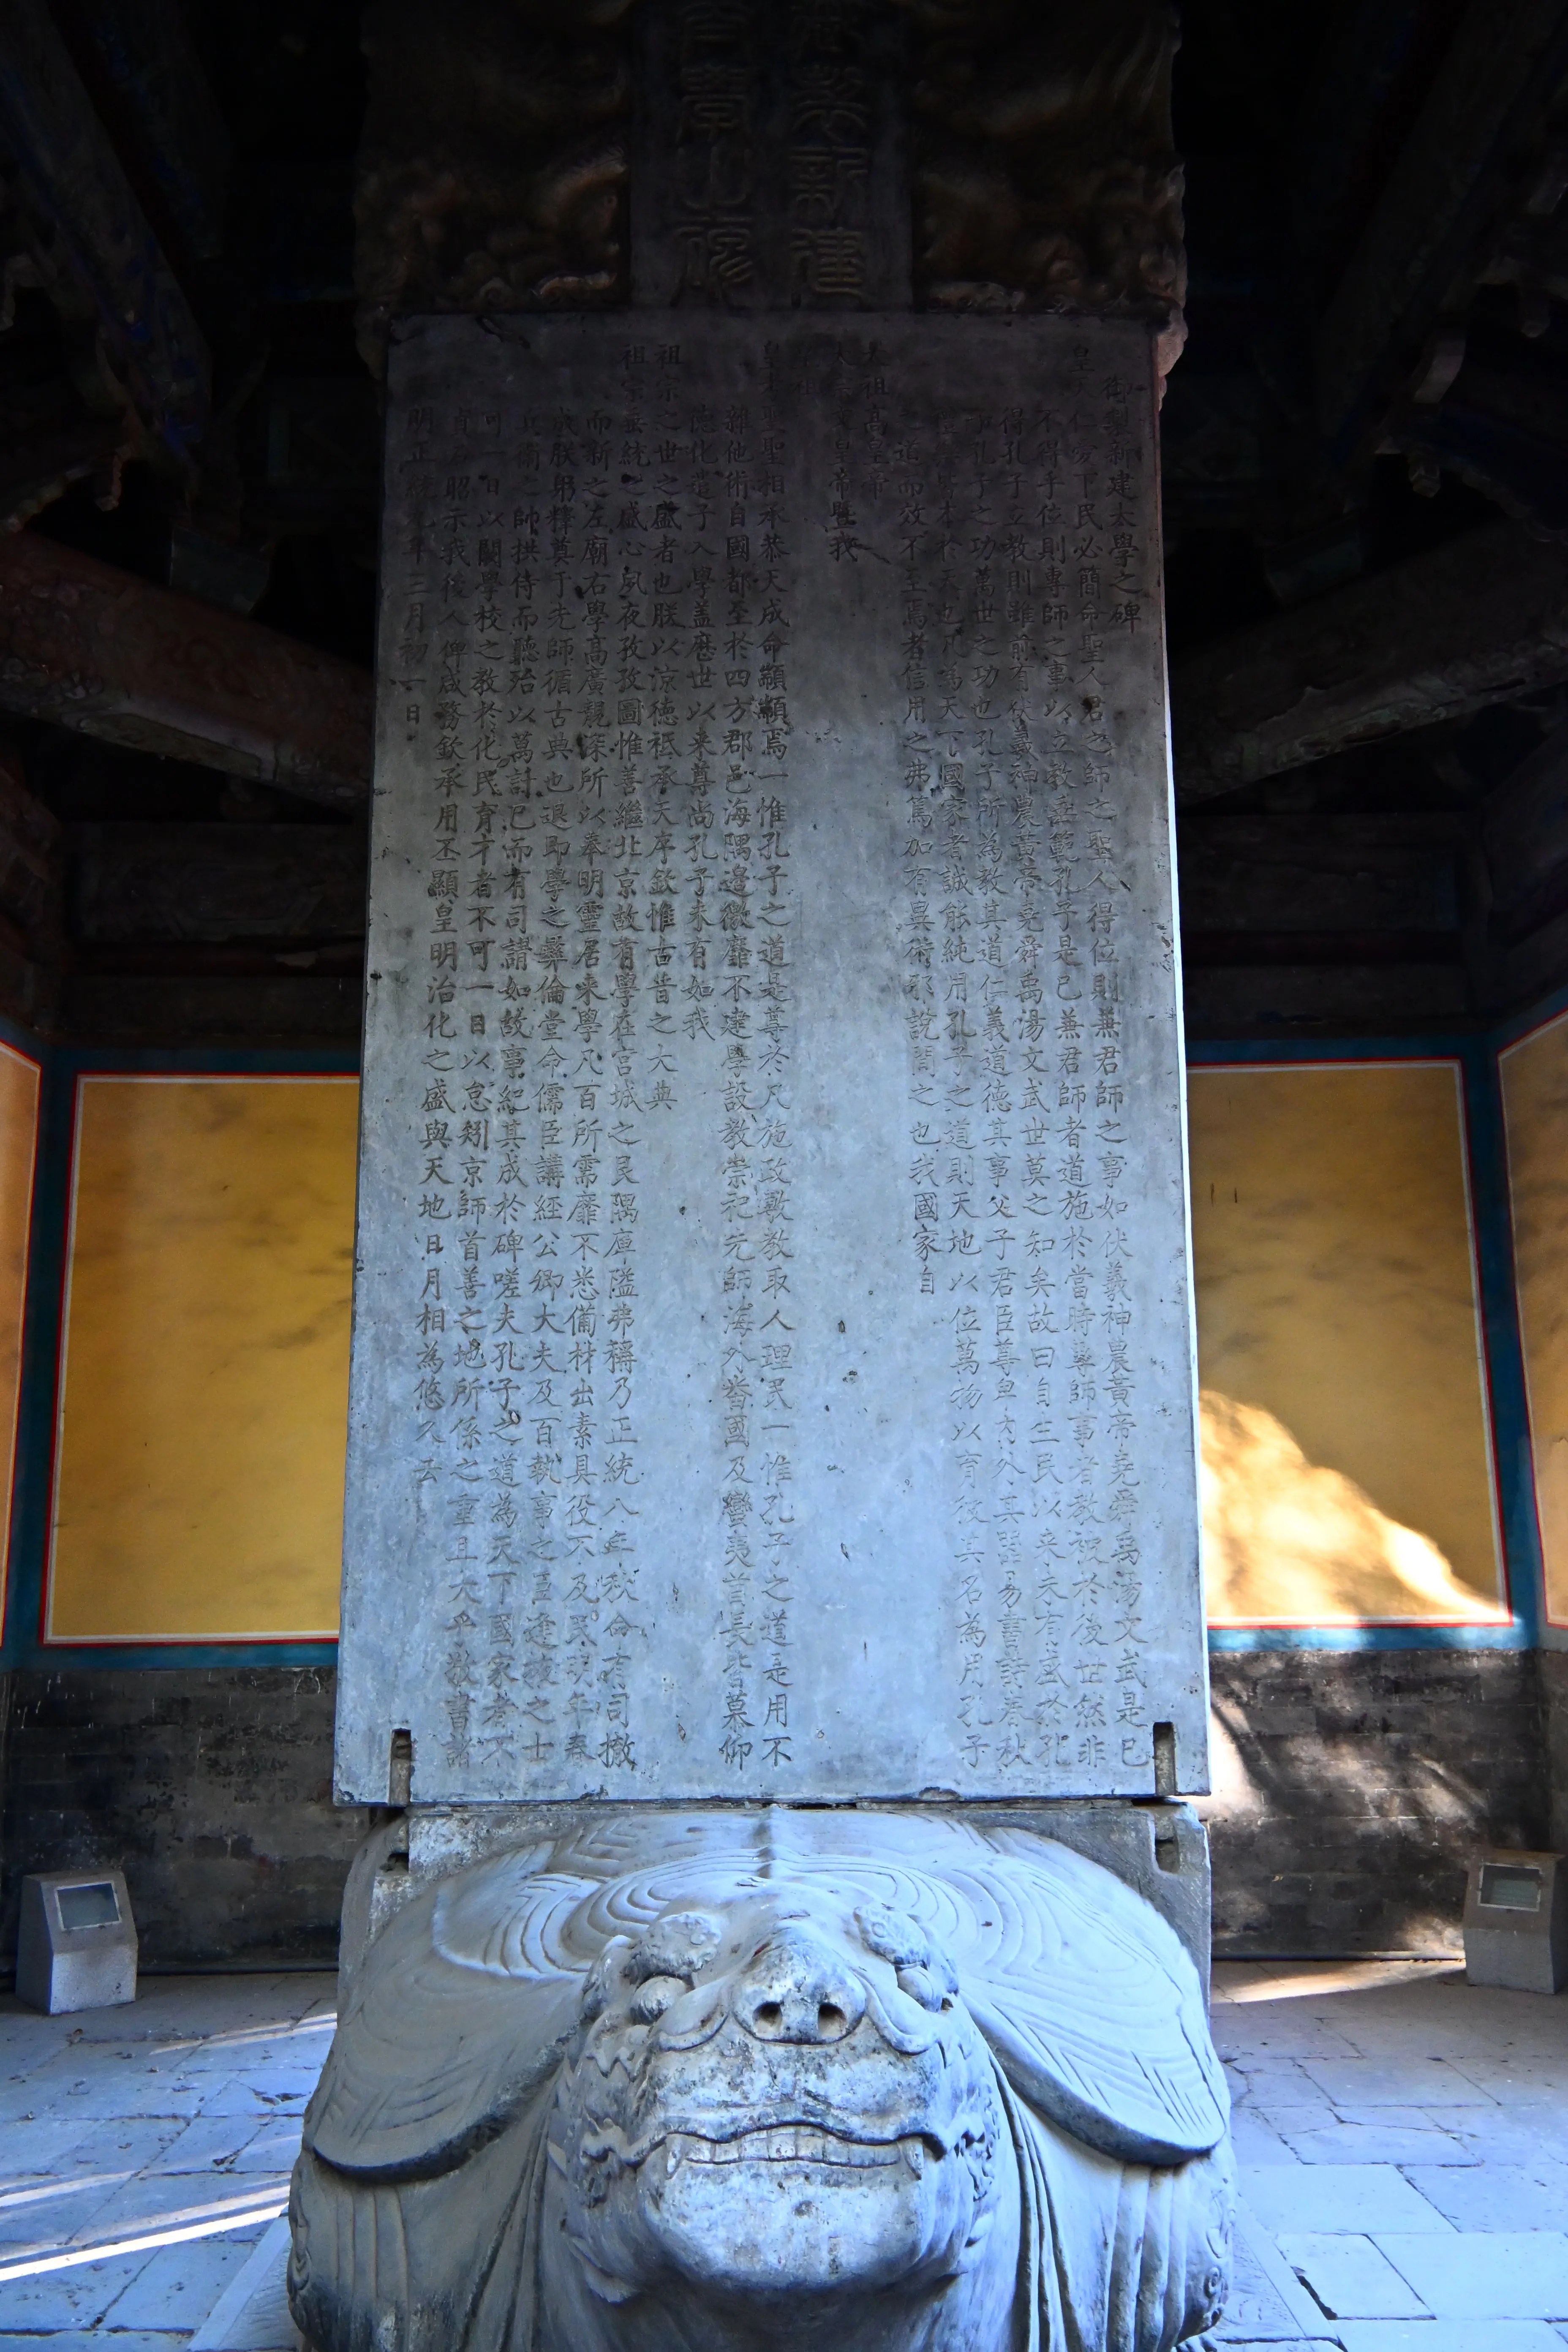 新建
御製新建太學之碑
皇天仁愛下民必簡命聖人君之師之聖人得位則兼君師之事如伏羲神農黃帝堯舜禹湯文武是已
不得乎位則專師之事以立教垂範孔子是已兼君師者道施於當時專師事者教被於後世然非
得孔子立教則雖前有伏羲神農黃帝堯舜禹湯文武世莫之知矣故曰自生民以來未有盛於孔
子孔子之功萬世之功也孔子所為教其道仁義道德其事父子君臣尊卑內外其器易書詩春秋
禮樂皆本於天也凡為天下國家者誠能純用孔子之道則天地以位萬物以育彼其名為用孔子
之道而效不至焉者信用之弗篤加有異術邪說間之也我國家自
太祖高皇帝
太宗文皇帝暨我
皇考聖聖相承恭天成命顒顒焉一惟孔子之道是尊於凡施政敷教取人理民一惟孔子之道是用不
雜他術自國都至於四方郡邑海隅邊徼靡不建學設教崇祀先師海外番國及蠻夷首長皆慕仰
德化遣子入學蓋歷世以來尊尚孔子未有如我
祖宗之世之盛者也朕以涼德祗承天序欽惟古昔之大典
祖宗垂統之盛心夙夜孜孜圖惟善繼北京故有學在宮城之艮隅庳隘弗稱乃正統八年秋命有司撤
而新之左廟右學高廣靚深所以奉明靈居來學凡百所需靡不悉備材出素具役不及民明年春
成朕躬釋奠于先師循古典也退即學之彝倫堂命儒臣講經公卿大夫及百執事之臣逢掖之士
之師拱侍而聽殆以萬計已而有司請如故事紀其成於碑嗟夫孔子之道為天下國家者不
可一日以闕學校之教於化民育才者不可一日以怠矧京師首善之地所係之重且大乎敬書諸
昭示我後人俾咸務欽承用丕顯皇明治化之盛與天地日月相為悠久云
明正統九年三月初一日